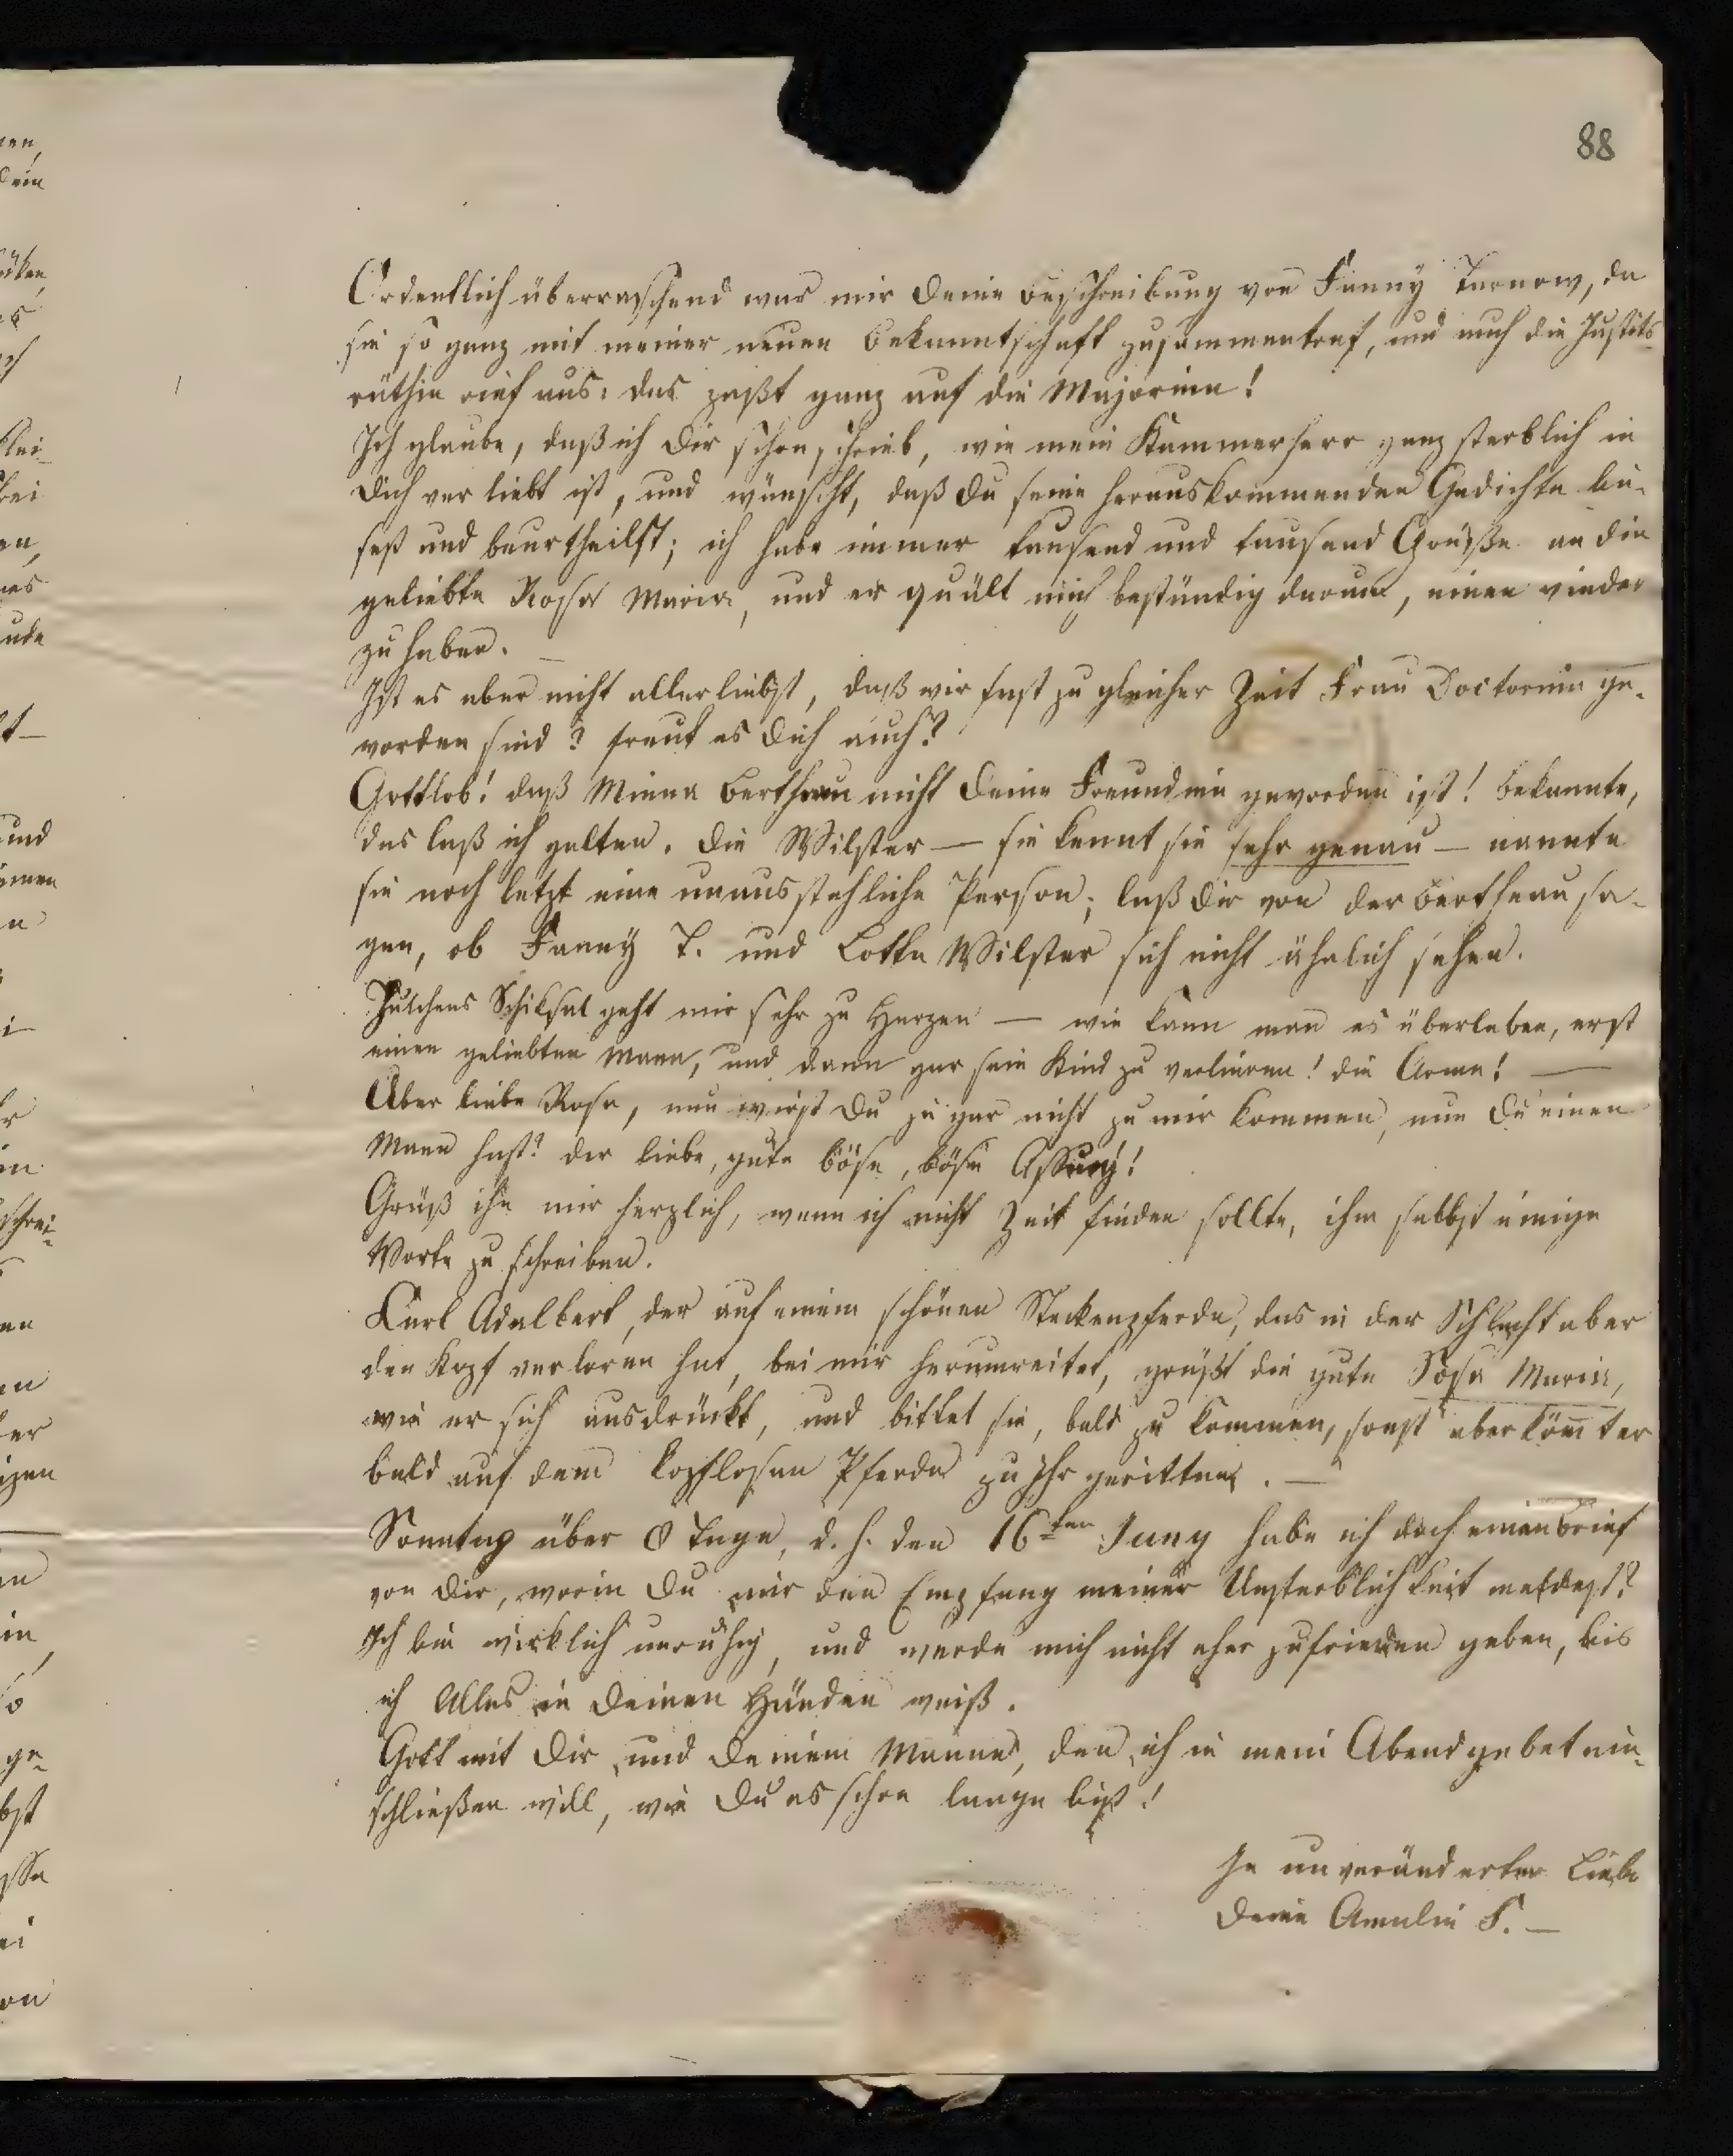 88
Ordentlich überraschend war mir Deine Beschreibung von Fanny Tarnow, da
sie so ganz mit meiner neuen Bekanntschaft zusammentraf, und auch die Justitz-
räthin rief aus: das paßt ganz auf die Majorinn!
Ich glaube, daß ich Dir schon schrieb, wie mein Kammerherr ganz sterblich in
Dich verliebt ist, und wünscht, daß Du seine herauskommenden Gedichte lie-
sest und beurtheilst; ich habe immer tausend und tausend Grüße an die
geliebte Rosa Maria, und er quält mich beständig darum, einen wieder
zu haben. —
Ist es aber nicht allerliebst, daß wir fast zu gleicher Zeit Frau Doctorinn ge-
worden sind? freut es Dich auch?
Gottlob! daß Minna Bertheau nicht Deine Freundinn geworden ist! Bekannte,
das laß ich gelten. Die Wilster — sie kennt sie sehr genau — nannte
sie noch letzt eine unausstehliche Person; laß Dir von der Bertheau sa-
gen, ob Fanny T. und Lotte Wilster sich nicht ähnlich sehen.
Julchens Schiksal geht mir sehr zu Herzen — wie kann man es überleben, erst
einen geliebten Mann, und dann gar sein Kind zu verlieren! die Arme! —
Aber liebe Rosa, nun wirst Du ja gar nicht zu mir kommen, nun Du einen
Mann hast? der liebe, gute böse, böse Assing!
Grüß ihn mir herzlich, wenn ich nicht Zeit finden sollte, ihm selbst einige
Worte zu schreiben.
Carl Adalbert, der auf einem schönen Steckenpferde, das in der Schlacht aber
den Kopf verloren hat, bei mir herumreitet, grüßt die gute Josa Maria,
wie er sich ausdrückt, und bittet sie, bald zu kommen, sonst aber köm̄t er
bald auf dem kopflosen Pferde zu Ihr geritten. —
Sonntag über 8 Tage, d. h. den 16ten Juny habe ich doch einen Brief
von Dir, worin Du mir den Empfang meiner Unsterblichkeit meldest?
Ich bin wirklich unruhig, und werde mich nicht eher zufrieden geben, bis
ich Alles in Deinen Händen weiß.
Gott mit Dir und Deinem Manne, den ich in mein Abendgebet ein-
schließen will, wie Du es schon lange bist!
In unveränderter Liebe
Deine Amalie S. —